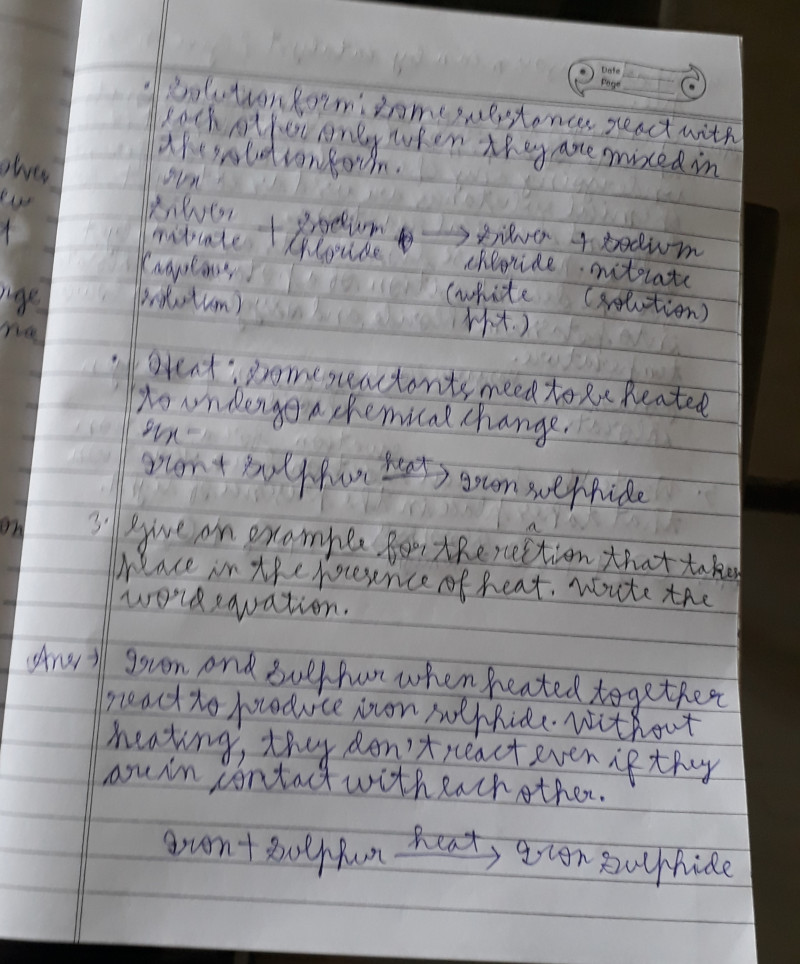 Date
Page
• Solution form: Some substances react with
each other only when they are mixed in
the solution form.
Ex-
Silver nitrate + Sodium chloride → Silver chloride + Sodium nitrate
(aqueous solution) (white ppt.) (solution)
• Heat: Some reactants need to be heated
to undergo a chemical change.
Ex-
Iron + Sulphur heat→ Iron sulphide
3. Give an example for the reaction that takes
place in the presence of heat. Write the
word equation.
Ans→ Iron and Sulphur when heated together
react to produce iron sulphide. Without
heating, they don't react even if they
are in contact with each other.
Iron + Sulphur heat→ Iron Sulphide